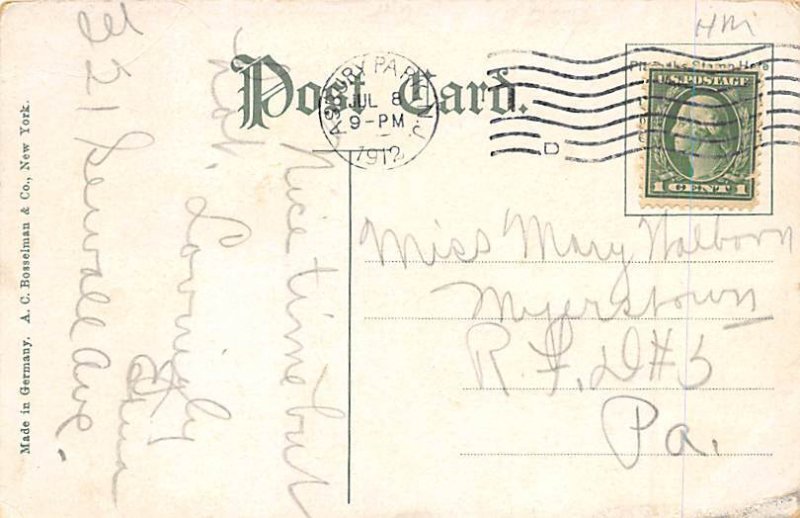 Post Card.
ASBURY PARK, N.J.
JUL 8
9-PM
1912
D
Place the Stamp Here
U.S. POSTAGE
1 CENT 1
Miss Mary Walborn
Myerstown
R.F.D #5
Pa.
Nice time but
hot.
Lovingly
221 Sewall Ave.
Made in Germany. A. C. Bosselman & Co., New York.